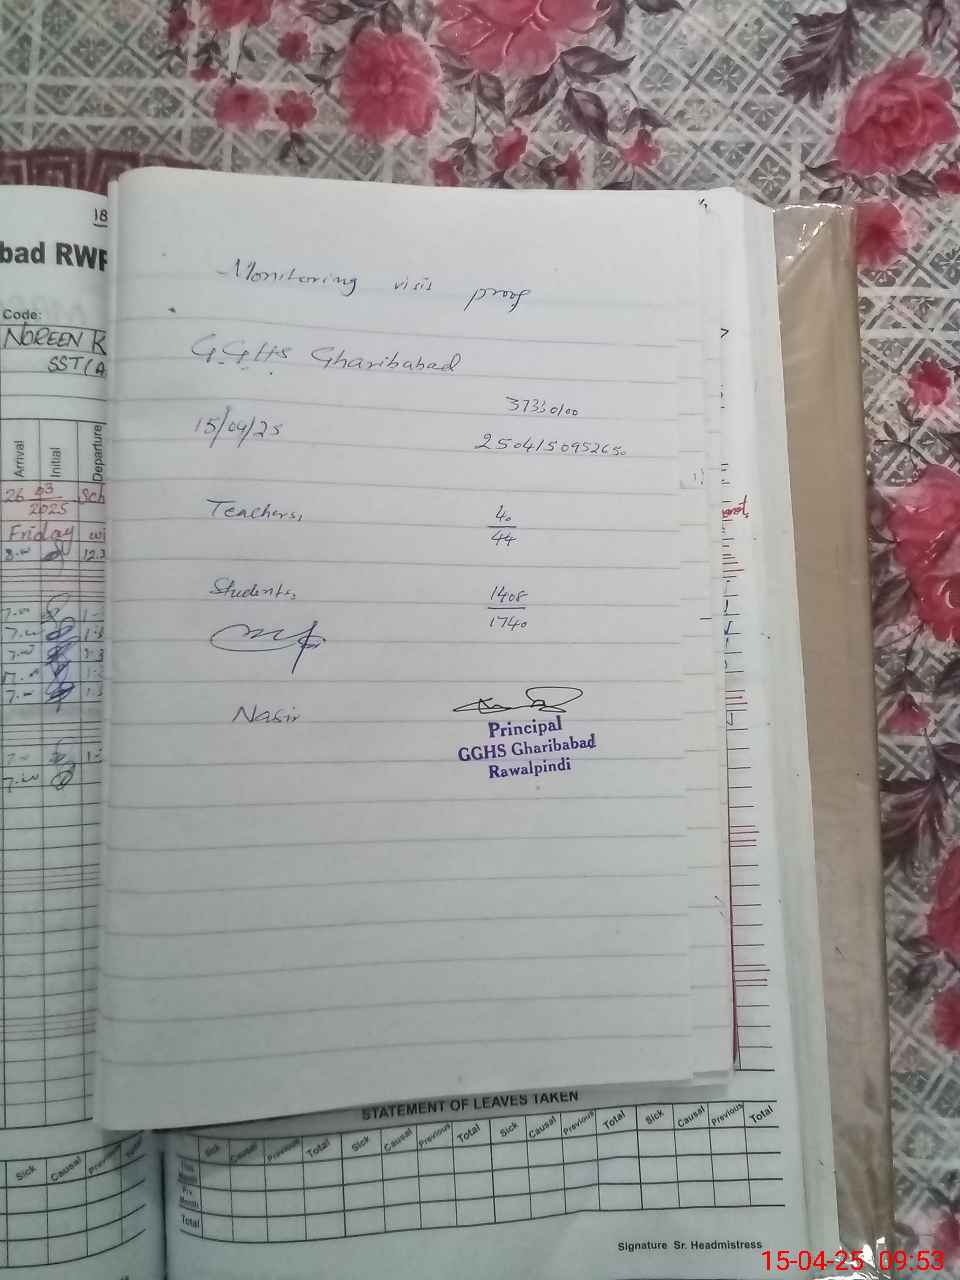 Monitoring visit proof
G.GHS Gharibabad
37330100
15/04/25
2504150952650
Teachers,
40
44
Students,
1408
1740
Nasir
Principal
GGHS Gharibabad
Rawalpindi
18
bad RWP
Code:
NOREEN K
SST(A
Arrival
Initial
Departure
26 03 Sch
2025
Friday wi
8.00 12.3
STATEMENT OF LEAVES TAKEN
Sick Causal Previous Total Sick Causal Previous Total Sick Causal Previous Total Sick Causal Previous Total
This Month
Prv. Month
Total
Sick Causal Previous
Signature Sr. Headmistress
15-04-25 09:53